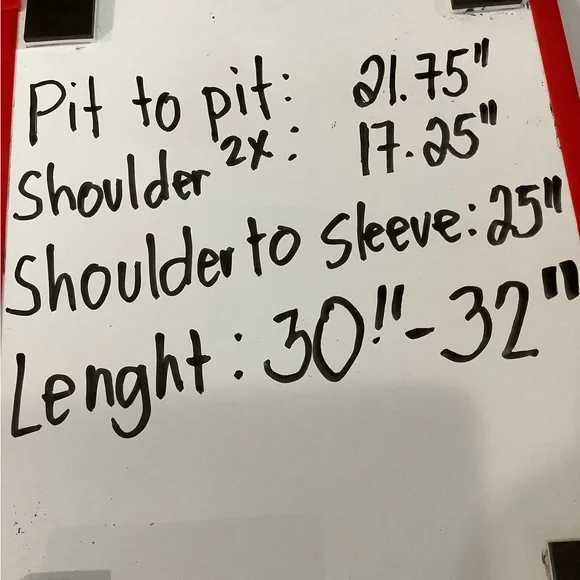 Pit to pit: 21.75"
Shoulder 2X: 17.25"
Shoulder to Sleeve: 25"
Lenght: 30"-32"